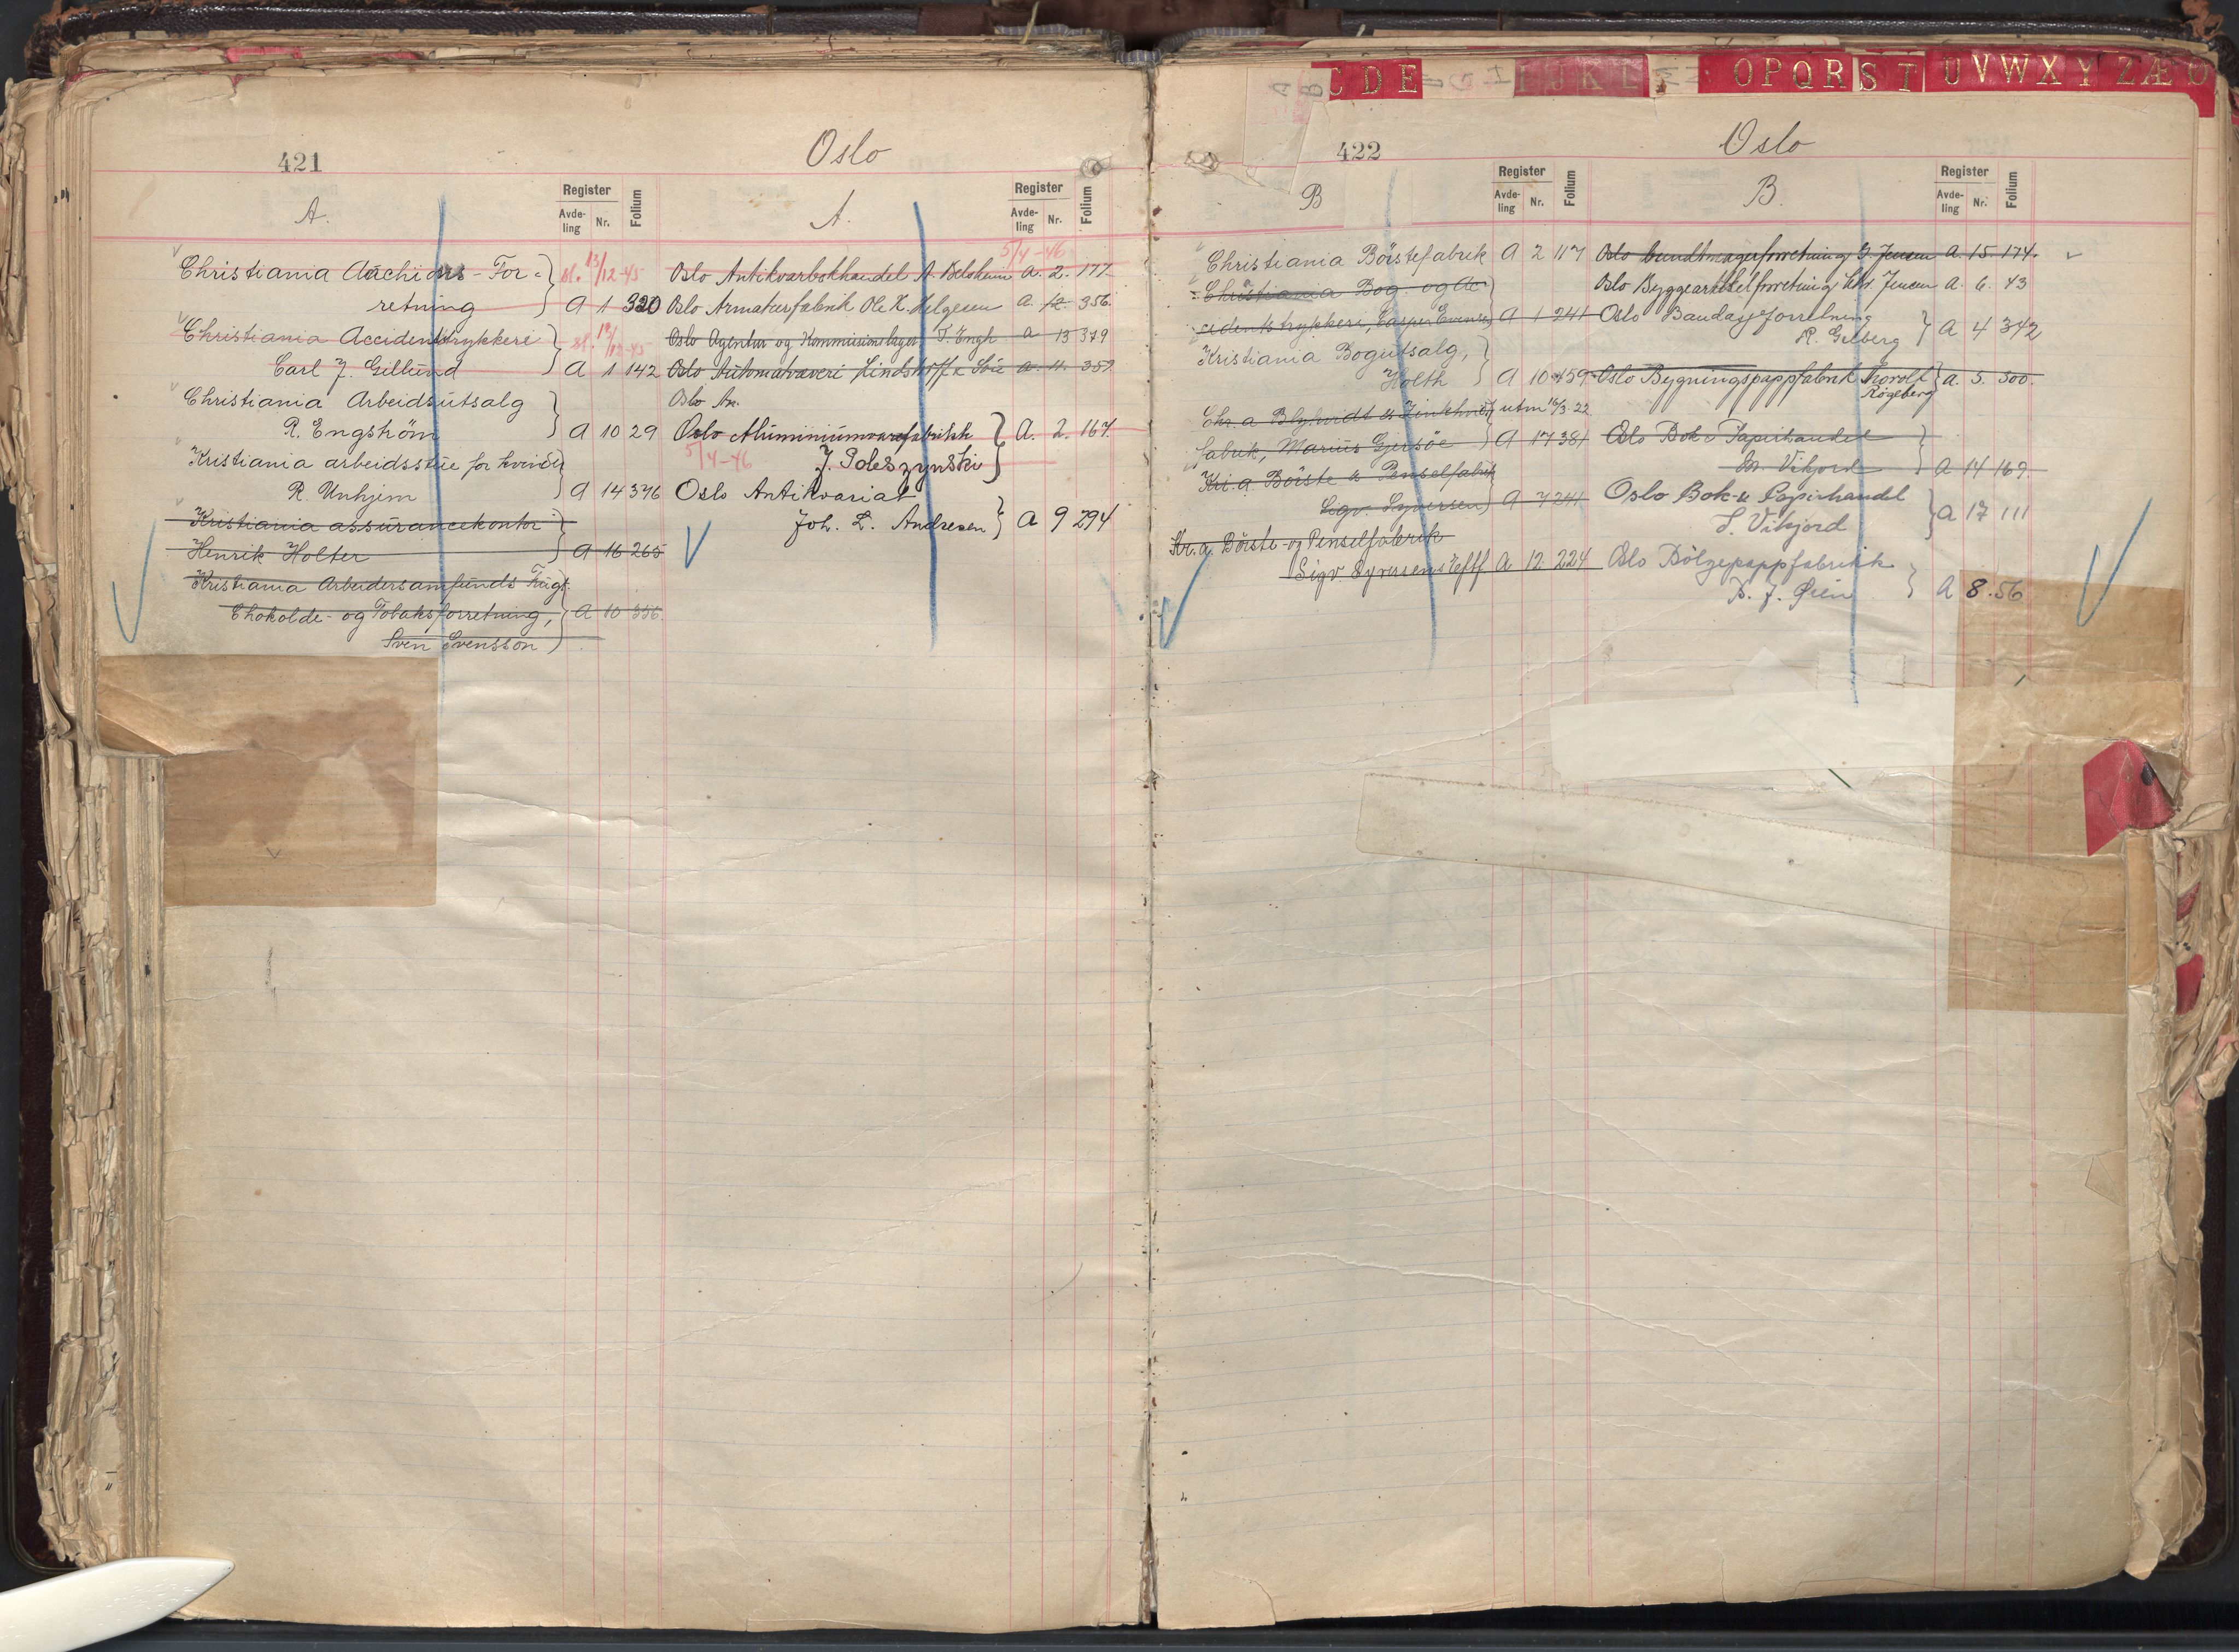 C D E I J K L O P Q R S T U V W X Y Z Æ Ø
421
Oslo
A.
Register
Avde-
ling Nr. Folium
A.
Register
Avde-
ling Nr. Folium
Christiania Auchions-For-
retning A 1 320
sl. 13/12-45
Christiania Accidenstrykkeri
Carl J. Gillund A 1 142
sl. 12/12-45
Christiania Arbeidsutsalg
R. Engström A 10 29
Kristiania arbeidsstue for kvinder
R. Unhjem A 14 376
Kristiania assurancekontor
Henrik Holter A 16 265
Kristiania Arbeidersamfunds Frugt
Chokolde- og Tobaksforretning, A 10 356.
Sven Svensson
5/4-46
Oslo Antikvarbokhandel A. Belsheim A. 2. 177.
Oslo Armaturfabrik Ole K. Helgesen A. 12. 356.
Oslo Agentur og Kommisionslager T. Engh A 13 379
Oslo Automatvæveri Lindstoff & Söie A. 11. 359.
Oslo An.
Oslo Aluminiumvarefabrikk A. 2. 167.
5/4-46 J. Poleszynski
Oslo Antikvariat
Joh. L. Andresen A 9 294
422
Oslo
B
Register
Avde-
ling Nr. Folium
B.
Register
Avde-
ling Nr. Folium
Christiania Börstefabrik A 2 117
Christiania Bog- og Ac-
cidentstrykkeri, Casper Evensen A 1 241
Kristiania Bogutsalg,
Holth A 10 459
Chr.a Blyhvidt & Zinkhvidt utm 16/3.22
fabrik, Marius Gjersöe A 17 381
Kr.a Börste & Penselfabrik
Sigv. Syversen A 7 241
Kr.a. Börste- og Penselfabrik
Sigv. Syversens Eftf A 12. 224
Oslo bundtmagerforretning G. Jensen A. 15. 174.
Oslo Byggeartikkelforretning Chr. Jensen A. 6. 43
Oslo Bandasjeforretning
R. Gilberg A 4 342
Oslo Bygningspappfabrik Thorolf A. 5. 300.
Rögeberg
Oslo Bok & Papirhandel
M. Vikjord A 14 169.
Oslo Bok- & Papirhandel
S. Vikjord A 17 111
Oslo Bölgepappfabrikk
B. J. Øien A 8. 56